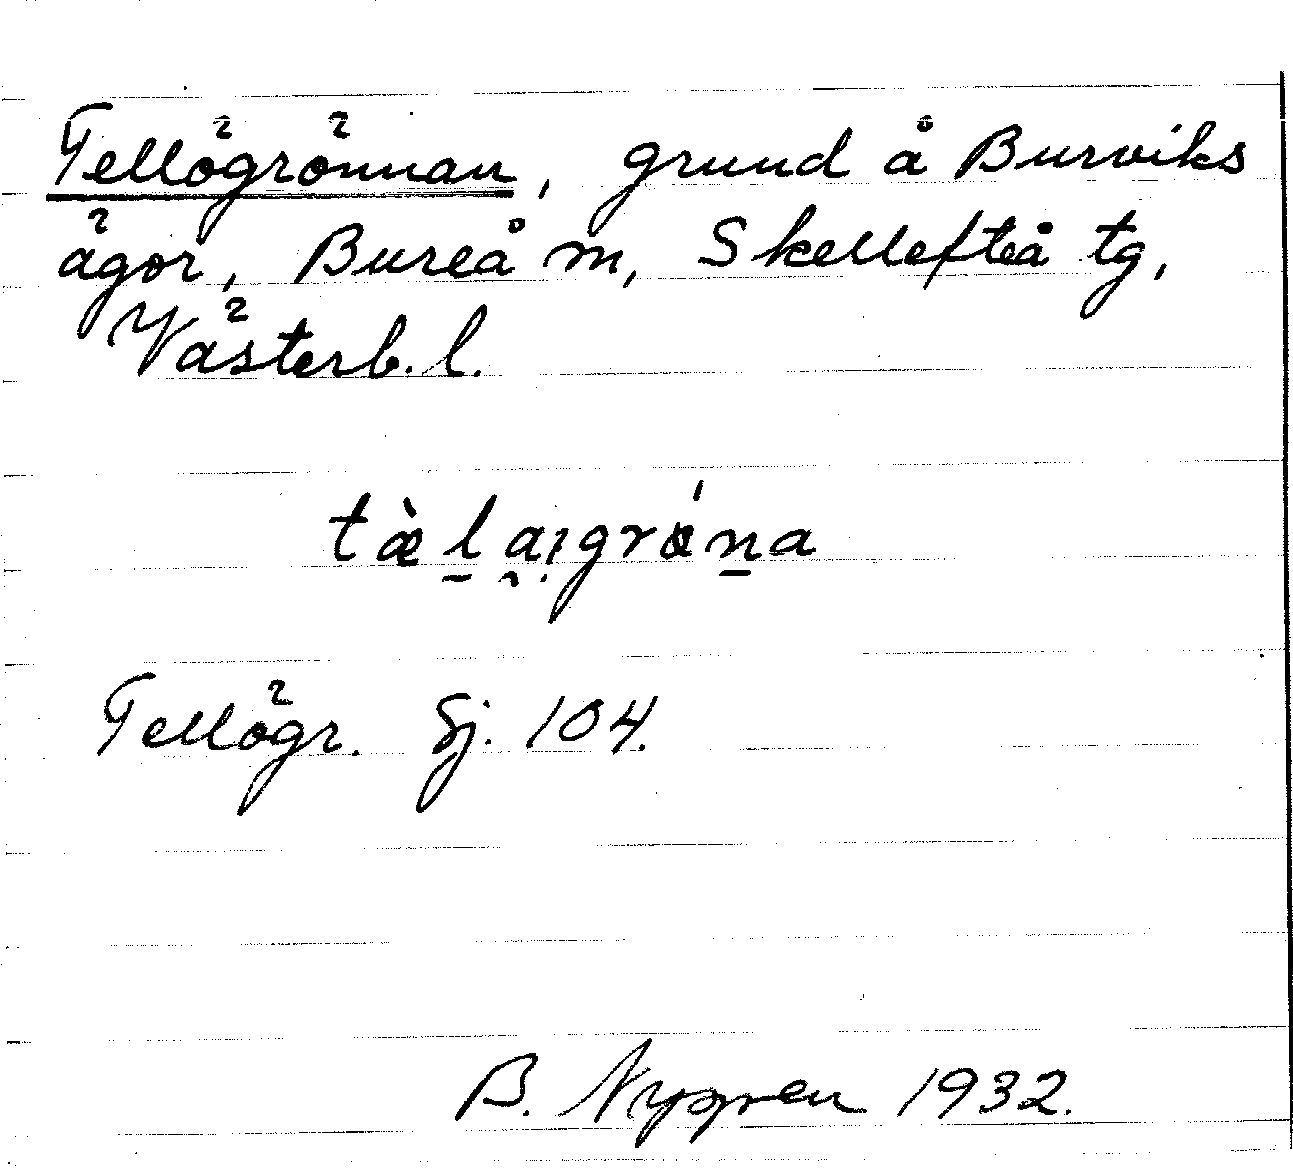 Tellögrönnan, grund å Burviks
ägor, Bureå m, Skellefteå tg,
Västerb. l.
tæ̀l̠a̯ı̣grǿn̠a
Tellögr. Sj. 104.
B. Nygren 1932.